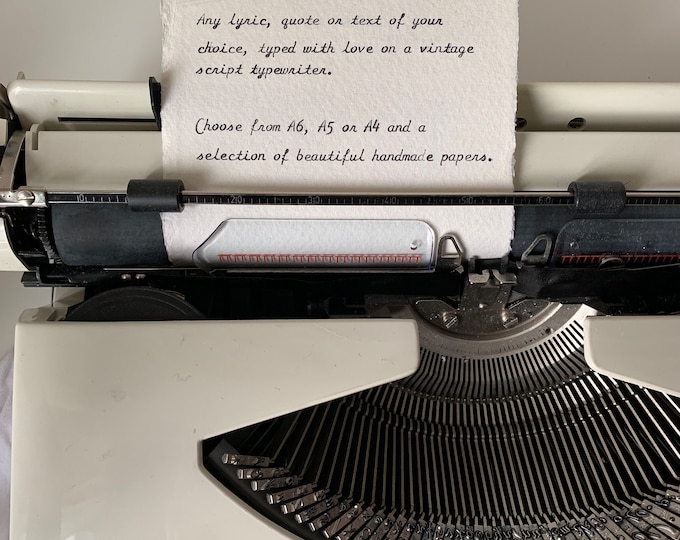 Any lyric, quote or text of your
choice, typed with love on a vintage
script typewriter.
Choose from A6, A5 or A4 and a
selection of beautiful handmade papers.